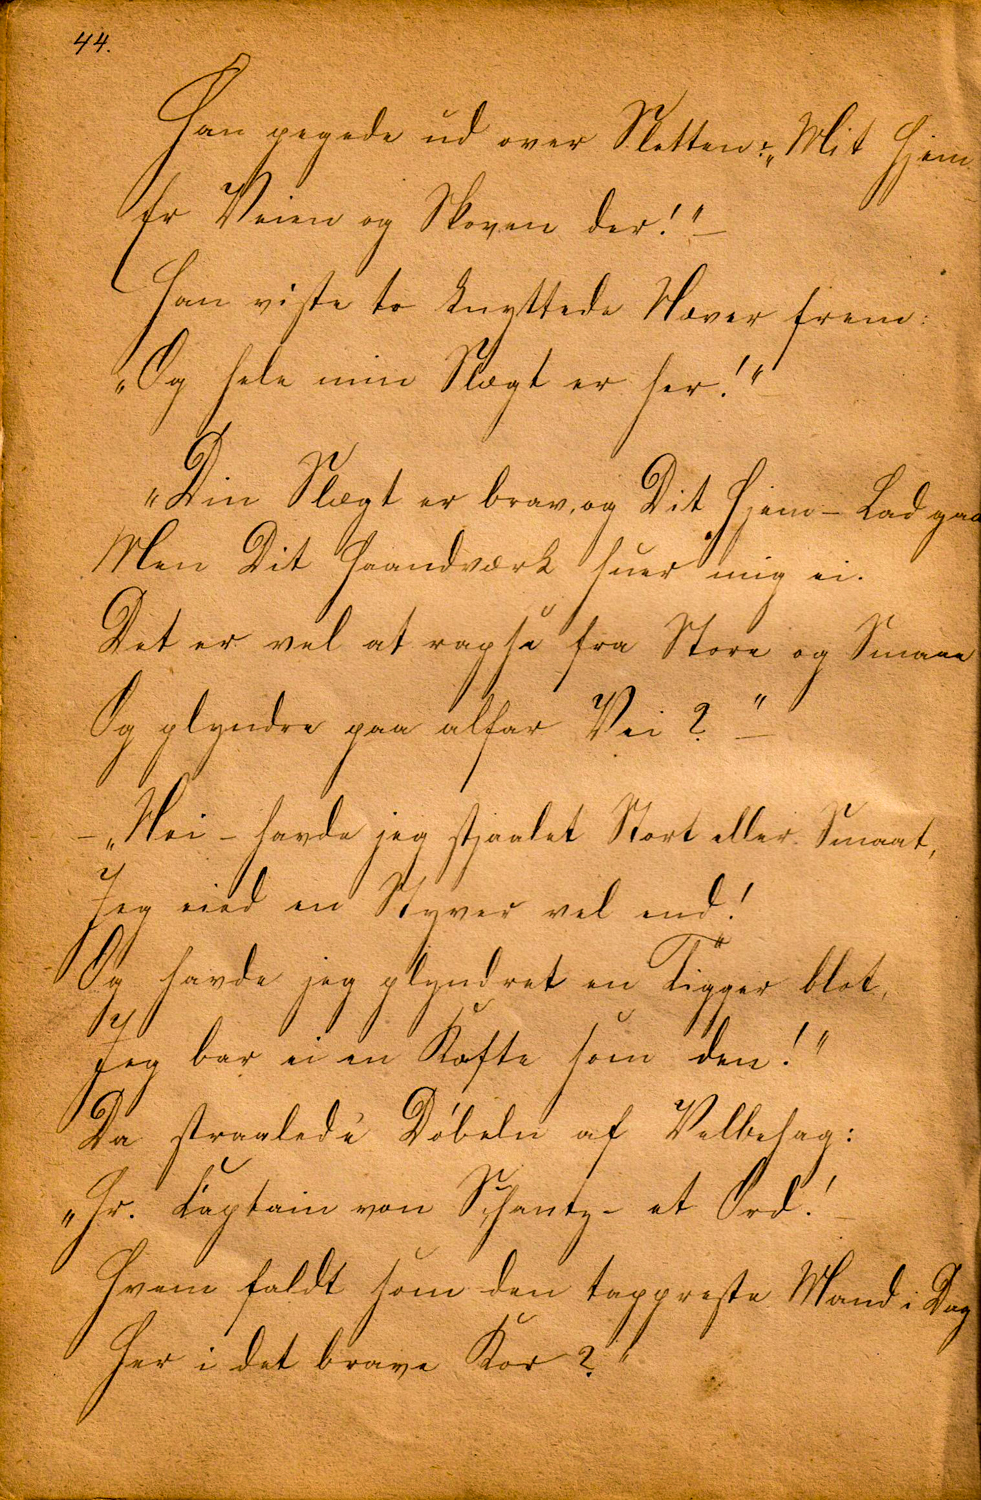 44.
Han pegede ud over Sletten: „Mit Hjem
Er Veien og Skoven der!" —
Han viste to knyttede Næver frem:
„Og hele min Slægt er her!" —
„Din Slægt er brav, og Dit Hjem – Lad gaa
Men Dit Haandværk huer mig ei.
Det er vel at rapse fra Store og Smaae
Og plyndre paa alfar Vei?" —
– „Nei – havde jeg stjaalet Stort eller Smaat,
Jeg eied en Styver vel end!
Og havde jeg plyndret en Tigger blot,
Jeg bar ei en Kofte som den!"
Da straalede Döbeln af Velbehag:
„Hr. Captain von Schantz – et Ord! —
Hvem faldt som den tappreste Mand i Dag
Her i det brave Kor?"